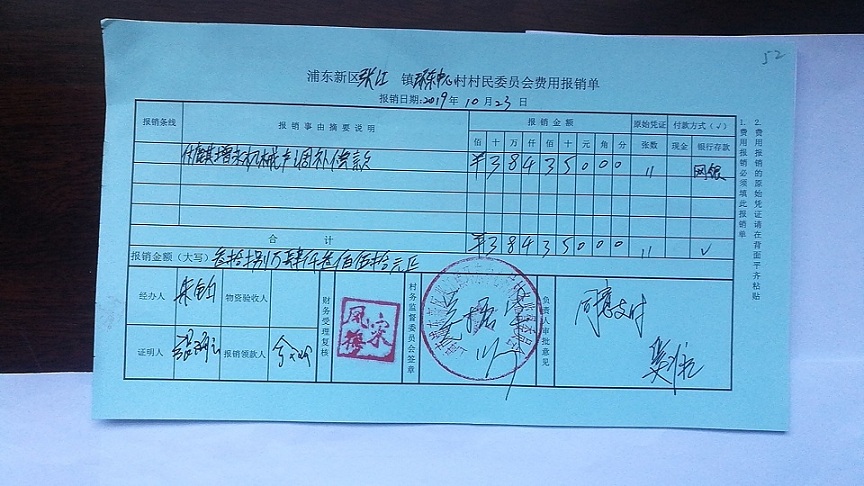 52
浦东新区张江 镇环东中心村村民委员会费用报销单
报销日期:2019年10月23日
报销条线 报销事由摘要说明 报销金额 原始凭证 付款方式(√)
佰 十 万 仟 佰 十 元 角 分 张数 现金 银行存款
¥38435000 11 网银
合计 ¥38435000 11 √
报销金额(大写) 叁拾捌万肆仟叁佰伍拾元正
经办人 物资验收人
证明人 报销领款人
财务受理复核
宋凤梅
村务监督委员会签章
负责人审批意见
同意支付
1.费用报销必须填此报销单
2.费用报销的原始凭证请在背面平齐粘贴